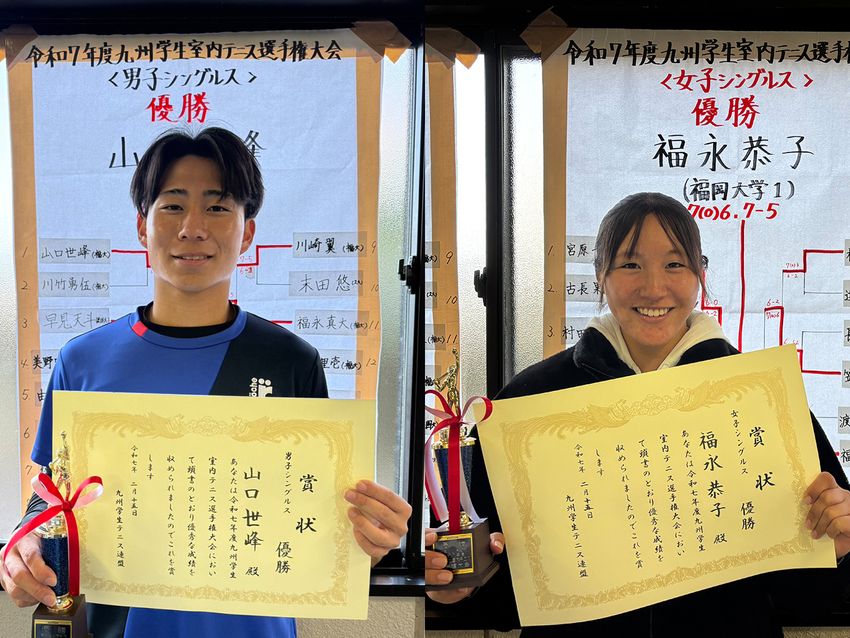 令和7年度九州学生室内テニス選手権大会
<男子シングルス>
優勝
山 峰
1. 山口世峰(福大)
2 川竹勇伍
3 早見天斗
4 美野
川﨑翼(福大) 9
末田悠 10
福永真大(福大) 11
里壱(福大) 12
賞状
男子シングルス 優勝
山口世峰 殿
あなたは令和七年度九州学生
室内テニス選手権大会におい
て頭書のとおり優秀な成績を
収められましたのでこれを賞
します
令和七年 二月十五日
九州学生テニス連盟
令和7年度九州学生室内テニス選手権
<女子シングルス>
優勝
福永恭子
(福岡大学1)
7(0)6.7-5
9
10
11
12
1. 宮原
2. 古長
3. 村田
賞状
女子シングルス 優勝
福永恭子 殿
あなたは令和七年度九州学生
室内テニス選手権大会におい
て頭書のとおり優秀な成績を
収められましたのでこれを賞
します
令和七年 二月十五日
九州学生テニス連盟